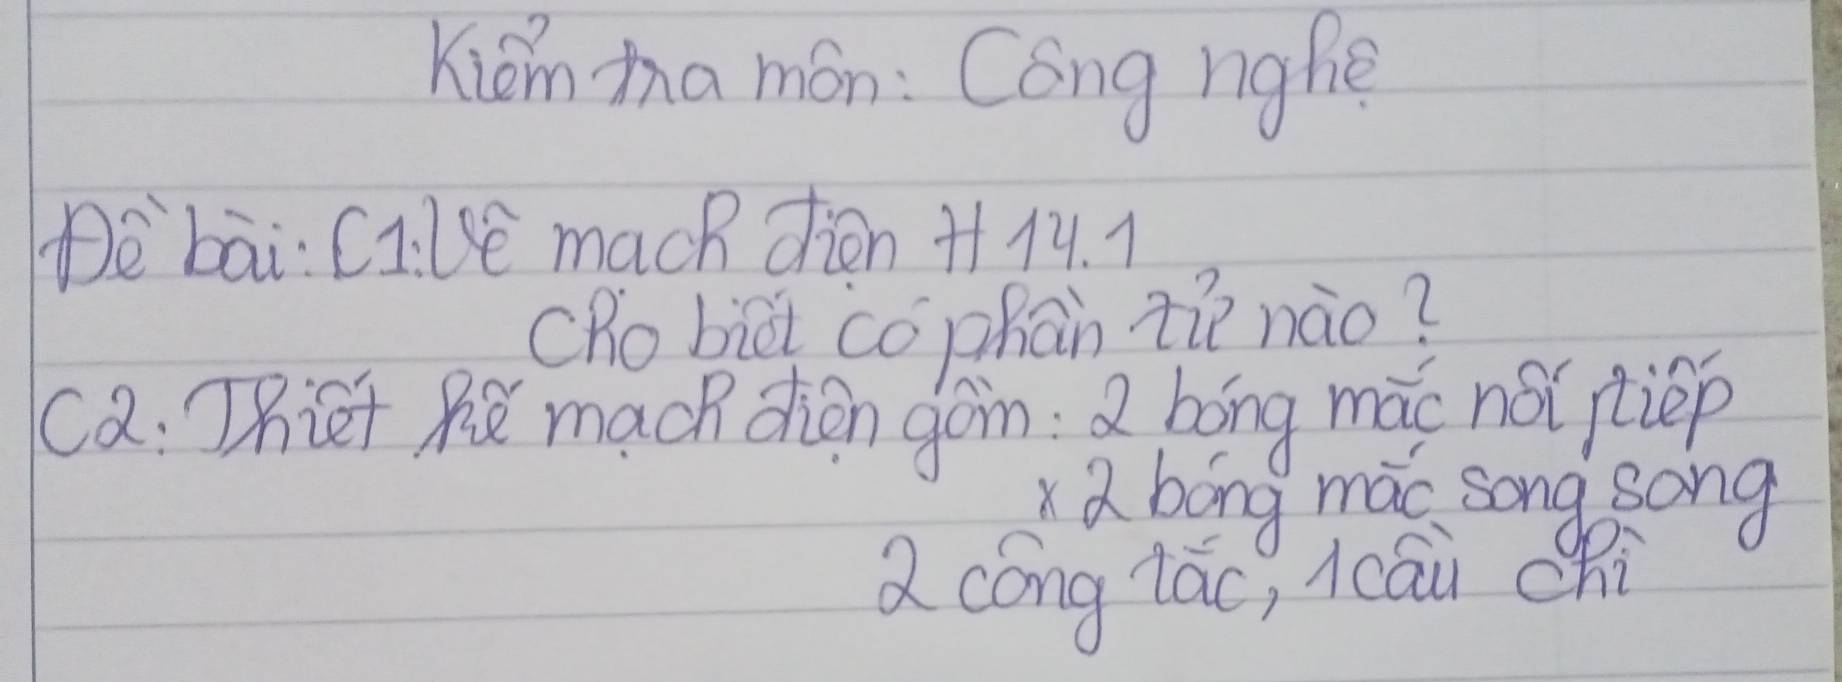 Kiểm tra môn: Công nghệ
Đề bài: C1: Vẽ mạch điện H 14.1
Cho biết có phần tử nào?
C2: Thiết kế mạch điện gồm: 2 bóng mắc nối tiếp
x 2 bóng mắc song song
2 công tắc, 1 cầu chì